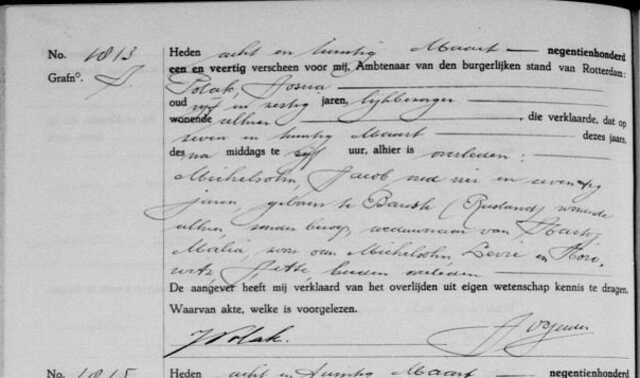 No. 1813 Heden acht en twintig Maart negentienhonderd
Grafn°. een en veertig verscheen voor mij, Ambtenaar van den burgerlijken stand van Rotterdam:
Polak, Josua
oud vijf en zestig jaren, lijkbezorger
wonende alhier, die verklaarde, dat op
zeven en twintig Maart dezes jaars,
des na middags te vijf uur, alhier is overleden:
Michelsohn, Jacob, oud vier en zeventig
jaren, geboren te Bausk (Rusland) wonende
alhier, zonder beroep, weduwnaar van
Malia, zoon van Michelsohn, Levie en Horo-
witz, Jette, beiden overleden
De aangever heeft mij verklaard van het overlijden uit eigen wetenschap kennis te dragen.
Waarvan akte, welke is voorgelezen.
J Polak.
No. 1815 Heden acht en twintig Maart negentienhonderd